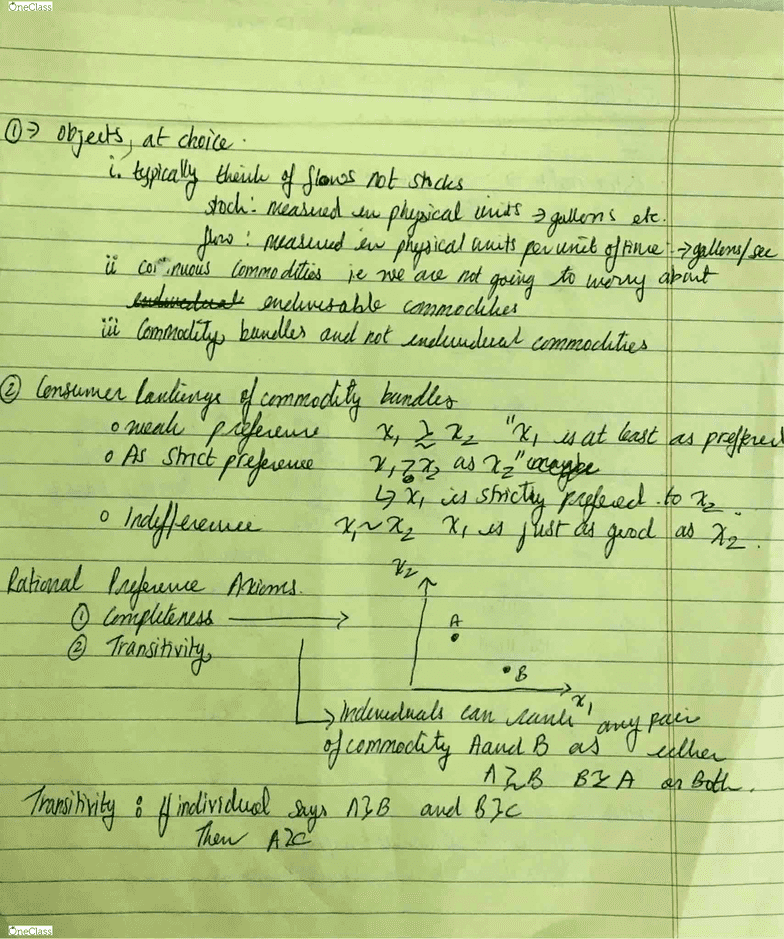 OneClass
①→ Objects, at choice.
i. typically think of flows not stocks
stock: measured in physical units → gallons etc.
flow: measured in physical units per unit of time → gallons/sec
ii continuous commodities ie we are not going to worry about
endivesable commodities
iii Commodity bundles and not commodities
② Consumer Rankings of commodity bundles
o weak preference x₁ ≿ x₂ "x₁ is at least as preffered
o As Strict preference x₁ ≻ x₂ as x₂"
↳ x₁ is strictly prefered to x₂.
o Indifference x₁ ~ x₂ x₁ is just as good as x₂.
Rational Preference Axioms.
x₂
① Completeness →
A
② Transitivity
B
x₁
→ Individuals can rank any pair
of commodity A and B as either
A ≿ B B ≿ A or Both.
Transitivity : If individual says A ≿ B and B ≿ C
Then A ≿ C
OneClass